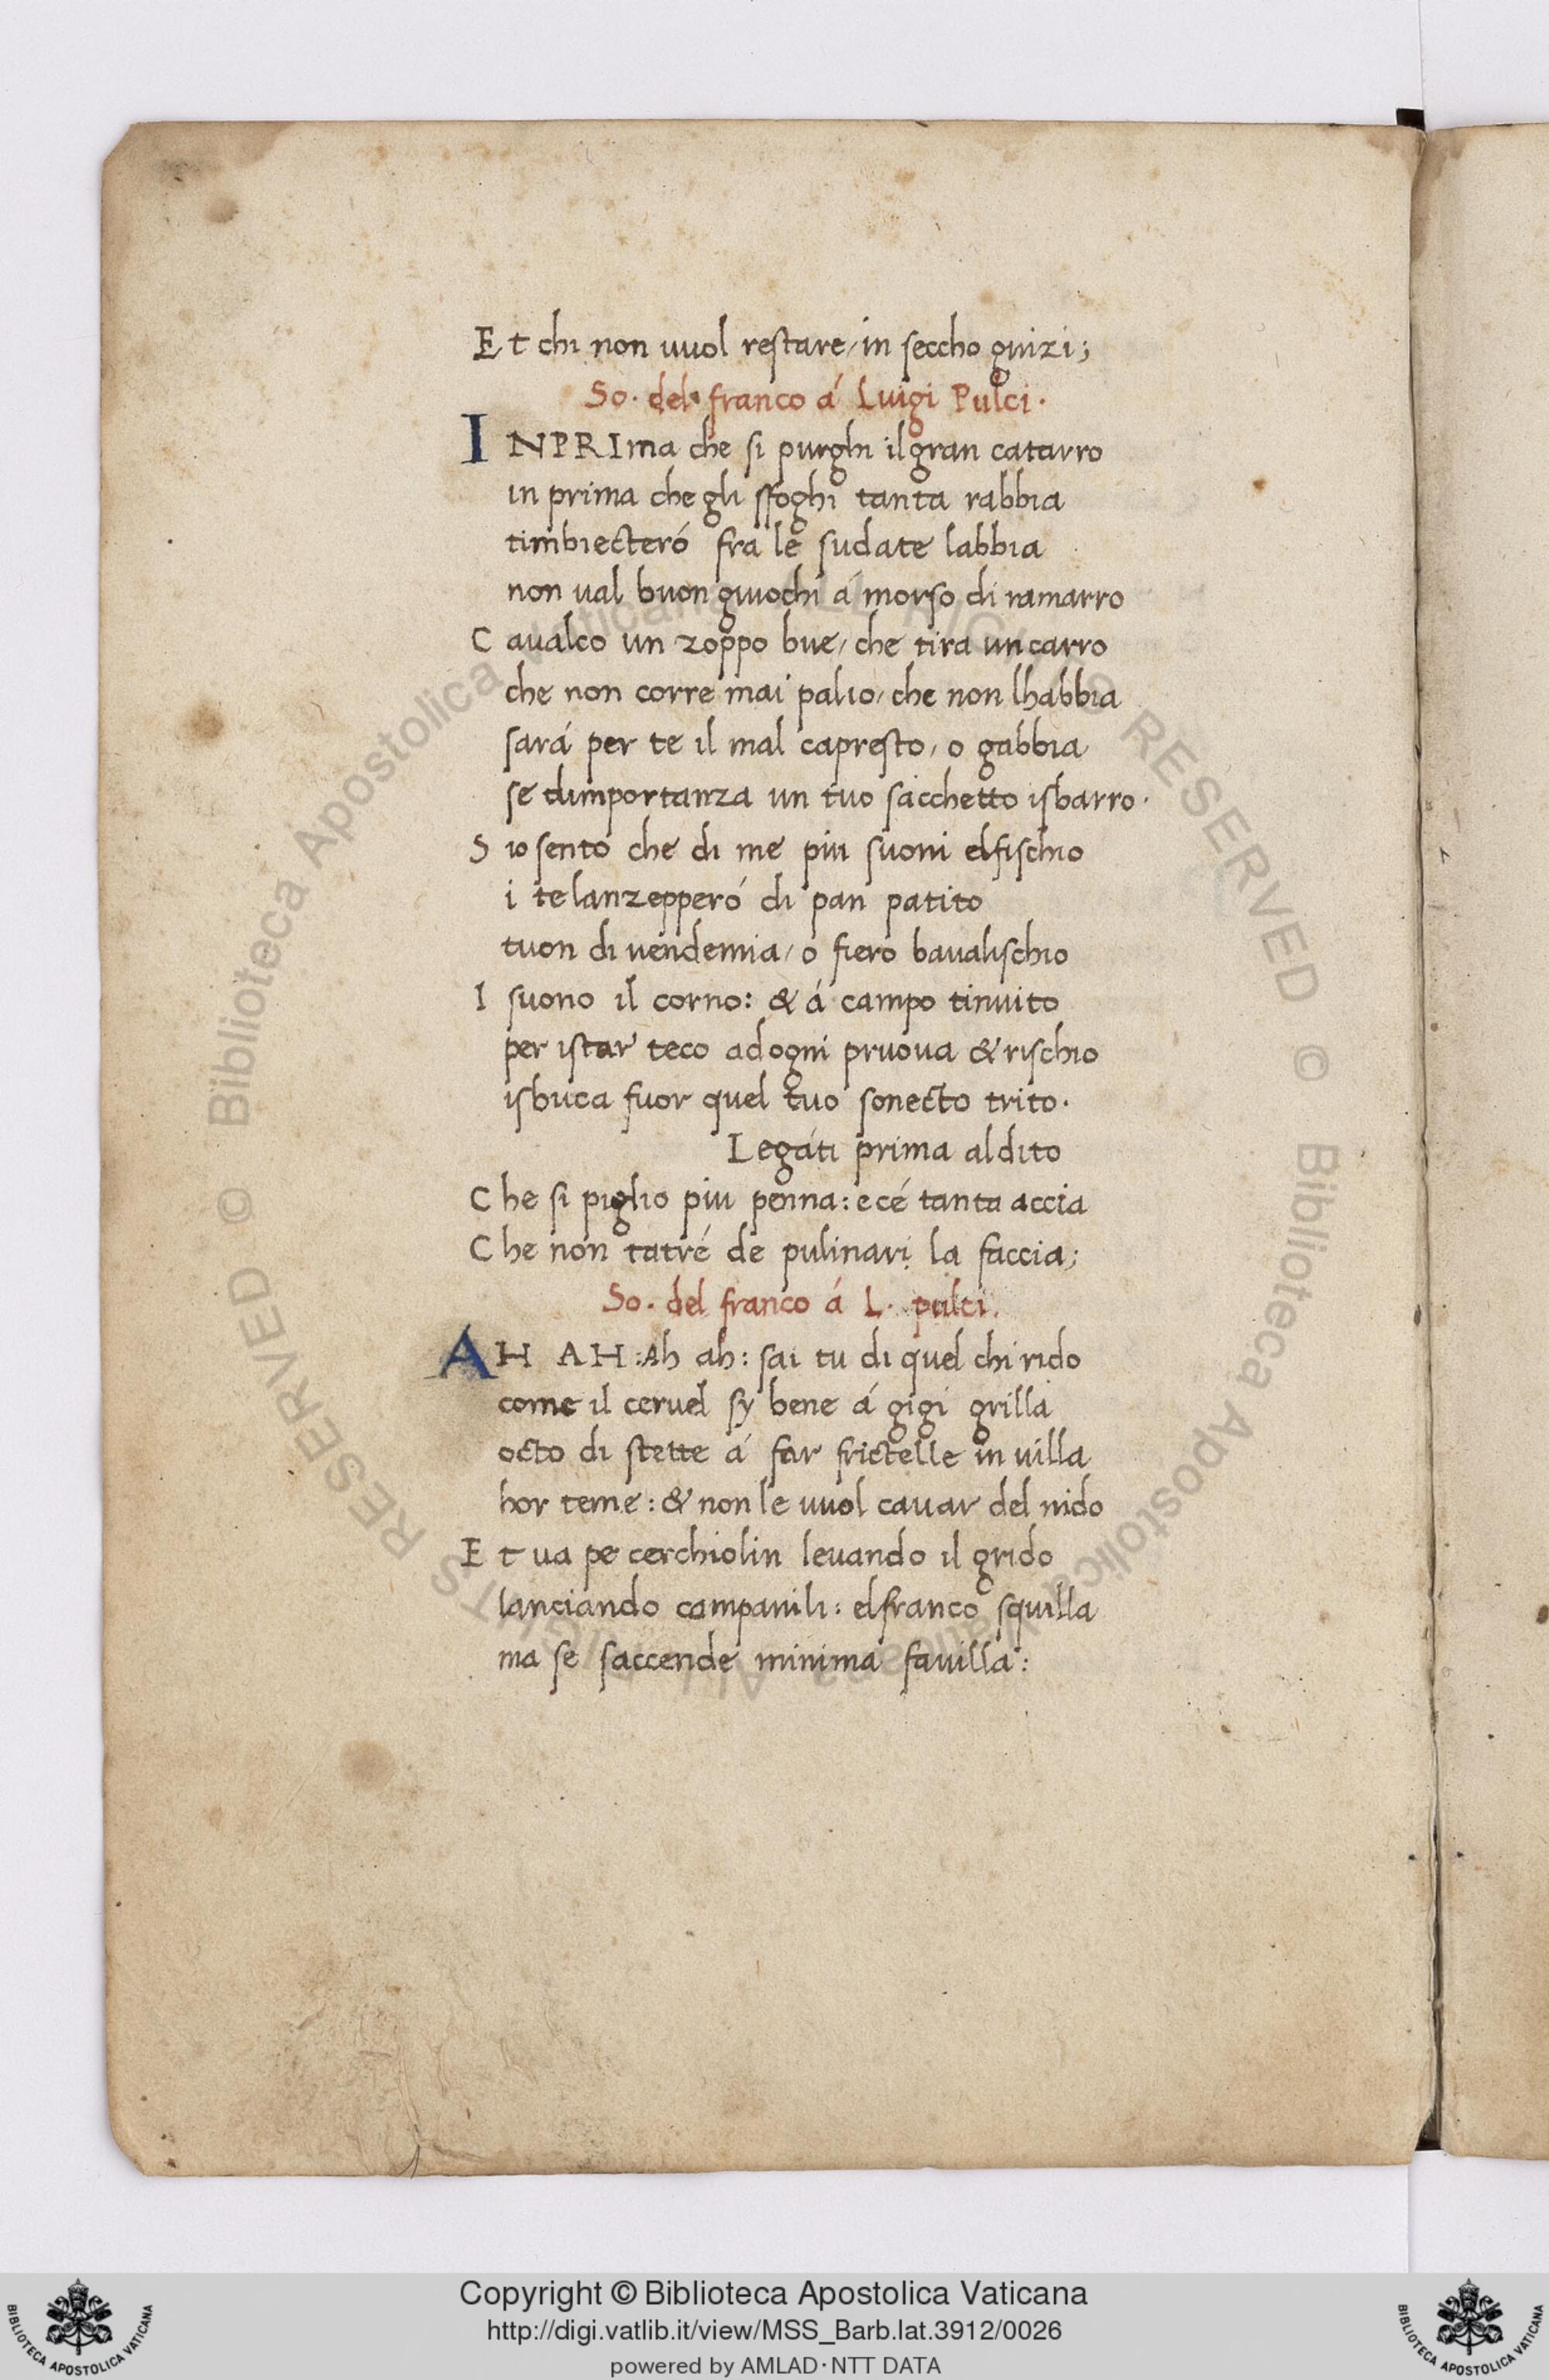 Et chi non uuol restare, in seccho guizi;
So. del franco á Luigi Pulci.
INPRIma che si purghi il gran catarro
in prima che gli sfoghi tanta rabbia
timbiecteró fra le sudate labbia
non ual buon giuochi á morso di ramarro
Caualco un zoppo bue, che tira un carro
che non corre mai palio, che non lhabbia
sará per te il mal capresto, o gabbia
se dimportanza un tuo sacchetto isbarro.
S io sento che di me piu suoni elfischio
i te lanzepperó di pan patito
tuon di uendemia, o fiero baualischio
I suono il corno: & á campo tinuito
per istar teco ad ogni pruoua & rischio
isbuca fuor quel tuo sonecto trito.
Legati prima aldito
Che si piglio piu penna: e cé tanta accia
Che non tatré de pulinari la faccia;
So. del franco á L. pulci.
AH AH: Ah ah: sai tu di quel chi rido
come il ceruel sy bene á gigi grilla
octo di stette á far frictelle in uilla
hor teme: & non le uuol cauar del nido
Et ua pe cerchiolin leuando il grido
lanciando campanili: elfranco squilla
ma se saccende minima fauilla:
Copyright © Biblioteca Apostolica Vaticana
http://digi.vatlib.it/view/MSS_Barb.lat.3912/0026
powered by AMLAD·NTT DATA
BIBLIOTECA APOSTOLICA VATICANA
BIBLIOTECA APOSTOLICA VATICANA
© Biblioteca Apostolica Vaticana ALL RIGHTS RESERVED
© Biblioteca Apostolica Vaticana ALL RIGHTS RESERVED